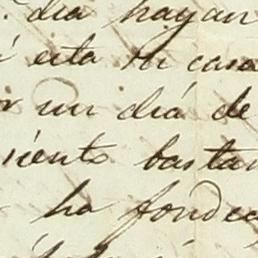 dia hayan
esta su casa
un diá de
siento bastan
ha fondea